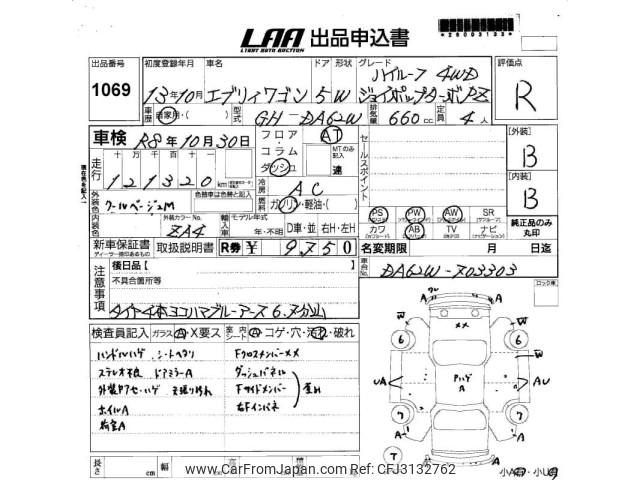 LAA 出品申込書
LIGHT AUTO AUCTION
*28003133*
出品番号 1069
初度登録年月 車名 ドア 形状 グレード 評価点
13年10月 エブリィワゴン 5 W ハイルーフ 4WD
ジョイポップターボPZ
R
車歴 自家用・( ) 型式 GH-DA62W 排気量 660 cc 定員 4 人
車検 R8年10月30日
フロア・コラム・ダッシュ AT
MTのみ記入 速
セールスポイント
[外装] B
[内装] B
走行 十 万 千 百 十 一
121320 km
冷房 AC
燃料 ガソリン・軽油・( )
色替車は色替と記入
外装色 クールベージュM
内装色 外装カラーNo. ZA4
輸入車 モデル年式 年・不明 D車・並 右H・左H
PS PW AW SR
カワ AB TV ナビ
純正品のみ丸印
新車保証書 取扱説明書 R券 ¥ 9,750
ディーラー捺印あるもの
名変期限 月 日迄
車台No. DA62W-703303
注意事項
後日品[ ]
不具合箇所等
タイヤ4本ヨコハマブルーアース 6.7分山
ロック車
検査員記入 ガラス A・X要ス 室内シート A コゲ・穴・汚れ・破れ
ハンドルハゲ シートヘタリ Fクロスメンバーメメ
ステレオ不良 ドアミラーA ダッシュパネル
Fサイドメンバー 歪み
ホイルA 右Fインパネ
荷室A
長さ cm 幅 cm 高さ
A A
W W
6 6
UA Pハゲ A AU
W
7 7
A A
T A
小A 小U
www.CarFromJapan.com Ref:CFJ3132762